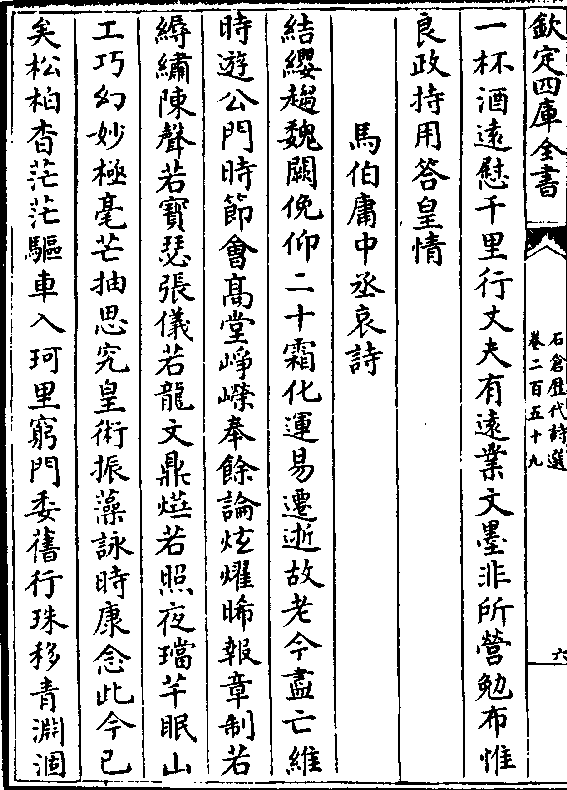 欽定四庫全書
石倉歴代詩選
卷二百五十九
六
一杯酒遠慰千里行丈夫有遠業文墨非所營勉布惟
良政持用答皇情
馬伯庸中丞哀詩
結纓趨魏闕俛仰二十霜化運易遷逝故老今盡亡維
時遊公門時節會髙堂崢嶸奉餘論炫燿晞報章制若
縟繡陳聲若寳瑟張儀若龍文鼎㷼若照夜璫芊眠山
工巧幻妙極毫芒抽思究皇術振藻詠時康念此今已
矣松柏杳茫茫驅車入珂里窮門委舊行珠移青淵涸